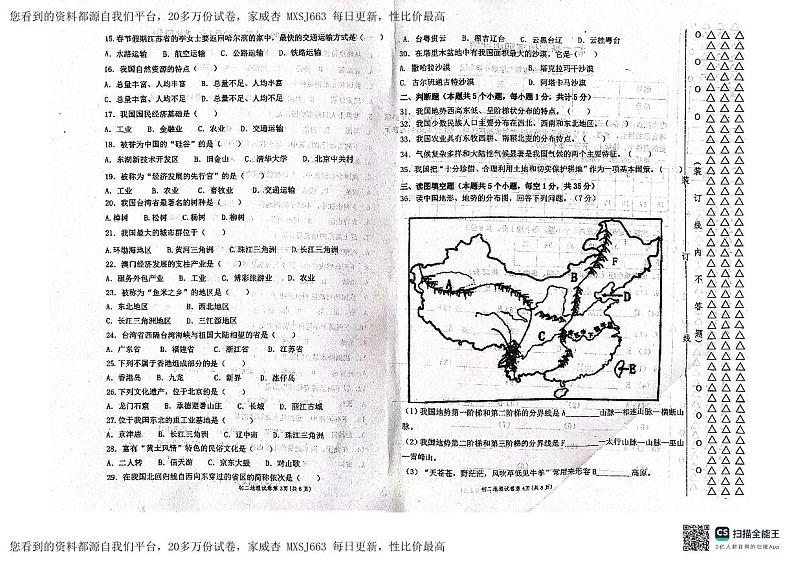 您看到的资料都源自我们平台，20多万份试卷，家威杏 MXSJ663 每日更新，性比价最高
15. 春节假期江苏省的李女士要返回哈尔滨的家中，最快的交通运输方式是（ ）
A. 水路运输 B. 航空运输 C. 公路运输 D. 铁路运输
16. 我国自然资源的特点（ ）
A. 总量丰富、人均丰富 B. 总量不足、人均丰富
C. 总量丰富、人均不足 D. 总量不足、人均不足
17. 我国国民经济基础是（ ）
A. 工业 B. 金融业 C. 农业 D. 交通运输
18. 被誉为中国的“硅谷”的是（ ）
A. 东湖新技术开发区 B. 旧金山 C. 清华大学 D. 北京中关村
19. 被称为“经济发展的先行官”的是（ ）
A. 工业 B. 农业 C. 畜牧业 D. 交通运输
20. 我国台湾省最著名的树种是（ ）
A. 樟树 B. 松树 C. 杨树 D. 柳树
21. 我国最大的城市群位于（ ）
A. 环渤海地区 B. 黄河三角洲 C. 珠江三角洲 D. 长江三角洲
22. 澳门经济发展的支柱产业是（ ）
A. 服务外包产业 B. 工业 C. 博彩旅游业 D. 农业
23. 被称为“鱼米之乡”的地区是（ ）
A. 东北地区 B. 西北地区
C. 长江三角洲地区 D. 三江源地区
24. 台湾省西隔台湾海峡与祖国大陆相望的省是（ ）
A. 广东省 B. 福建省 C. 浙江省 D. 江苏省
25. 下列不属于香港组成部分的是（ ）
A. 香港岛 B. 九龙 C. 新界 D. 氹仔岛
26. 下列文化遗产，位于北京的是（ ）
A. 龙门石窟 B. 承德避暑山庄 C. 长城 D. 丽江古城
27. 位于我国东北的重工业基地是（ ）
A. 京津唐 B. 长江三角洲 C. 辽中南 D. 珠江三角洲
28. 富有“黄土风情”特色的民俗文化是（ ）
A. 二人转 B. 信天游 C. 京东大鼓 D. 对山歌
29. 在我国北回归线自西向东穿过的省区的简称依次是（ ）
初二地理试卷第3页(共8页)
A. 台粤贡云 B. 蒙吉辽台 C. 云黑台辽 D. 云桂粤台
30. 在塔里木盆地中有我国面积最大的沙漠，它是（ ）
A. 撒哈拉沙漠 B. 塔克拉玛干沙漠
C. 古尔班通古特沙漠 D. 阿塔卡马沙漠
二、判断题（本题共5个小题，每小题1分，共计5分）
31. 我国地势西高东低、呈阶梯状分布的特点。（ ）
32. 我国少数民族人口主要分布在西北、西南和东北地区。（ ）
33. 我国农业具有东牧西耕、南稻北麦的分布特点。（ ）
34. 气候复杂多样和大陆性气候显著是我国气候的两个主要特征。（ ）
35. 我国把“十分珍惜、合理利用土地和切实保护耕地”作为一项基本国策。（ ）
三、读图填空题（本题共5个小题，每空1分，共35分）
36. 读中国地形、地势的分布图，回答下列问题。（7分）
A
B
F
D
C
E
（1）我国地势第一阶梯和第二阶梯的分界线是A______山脉—祁连山脉—横断山
脉。
（2）我国地势第二阶梯和第三阶梯的分界线是F______—太行山脉—巫山山脉—
—雪峰山。
（3）“天苍苍，野茫茫，风吹草低见牛羊”常用来形容B______高原。
初二地理试卷第4页(共8页)
（装订线内不答题）
装
订
线
CS 扫描全能王
3亿人都在用的扫描App
您看到的资料都源自我们平台，20多万份试卷，家威杏 MXSJ663 每日更新，性比价最高